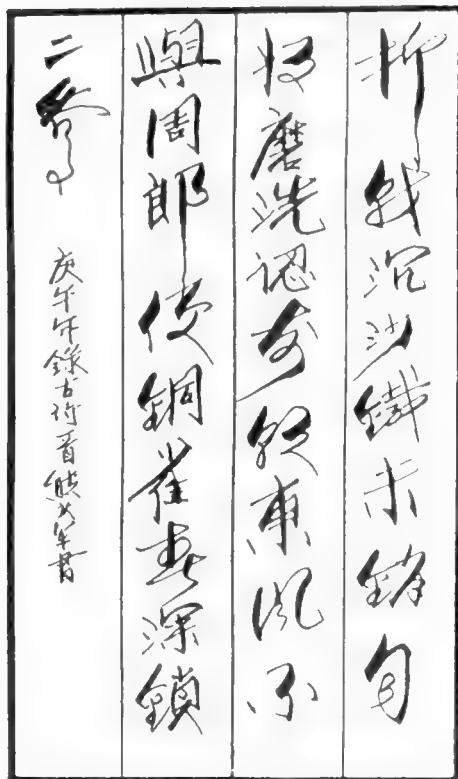 折戟沉沙鐵未銷自
將磨洗認前朝東風不
與周郎便銅雀春深鎖
二喬
庚午年錄古詩一首 熊 年書